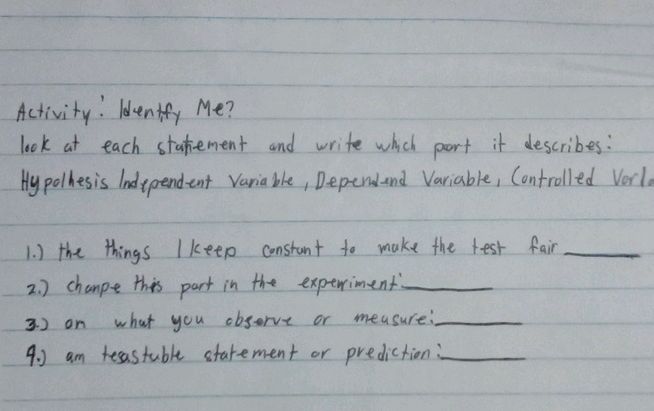 Activity: Identify Me?
look at each statement and write which part it describes:
Hypothesis Independent Variable, Dependend Variable, Controlled
1.) the things I keep constant to make the test fair ______
2.) change this part in the experiment: ______
3.) on what you observe or measure: ______
4.) am tesastuble statement or prediction: ______